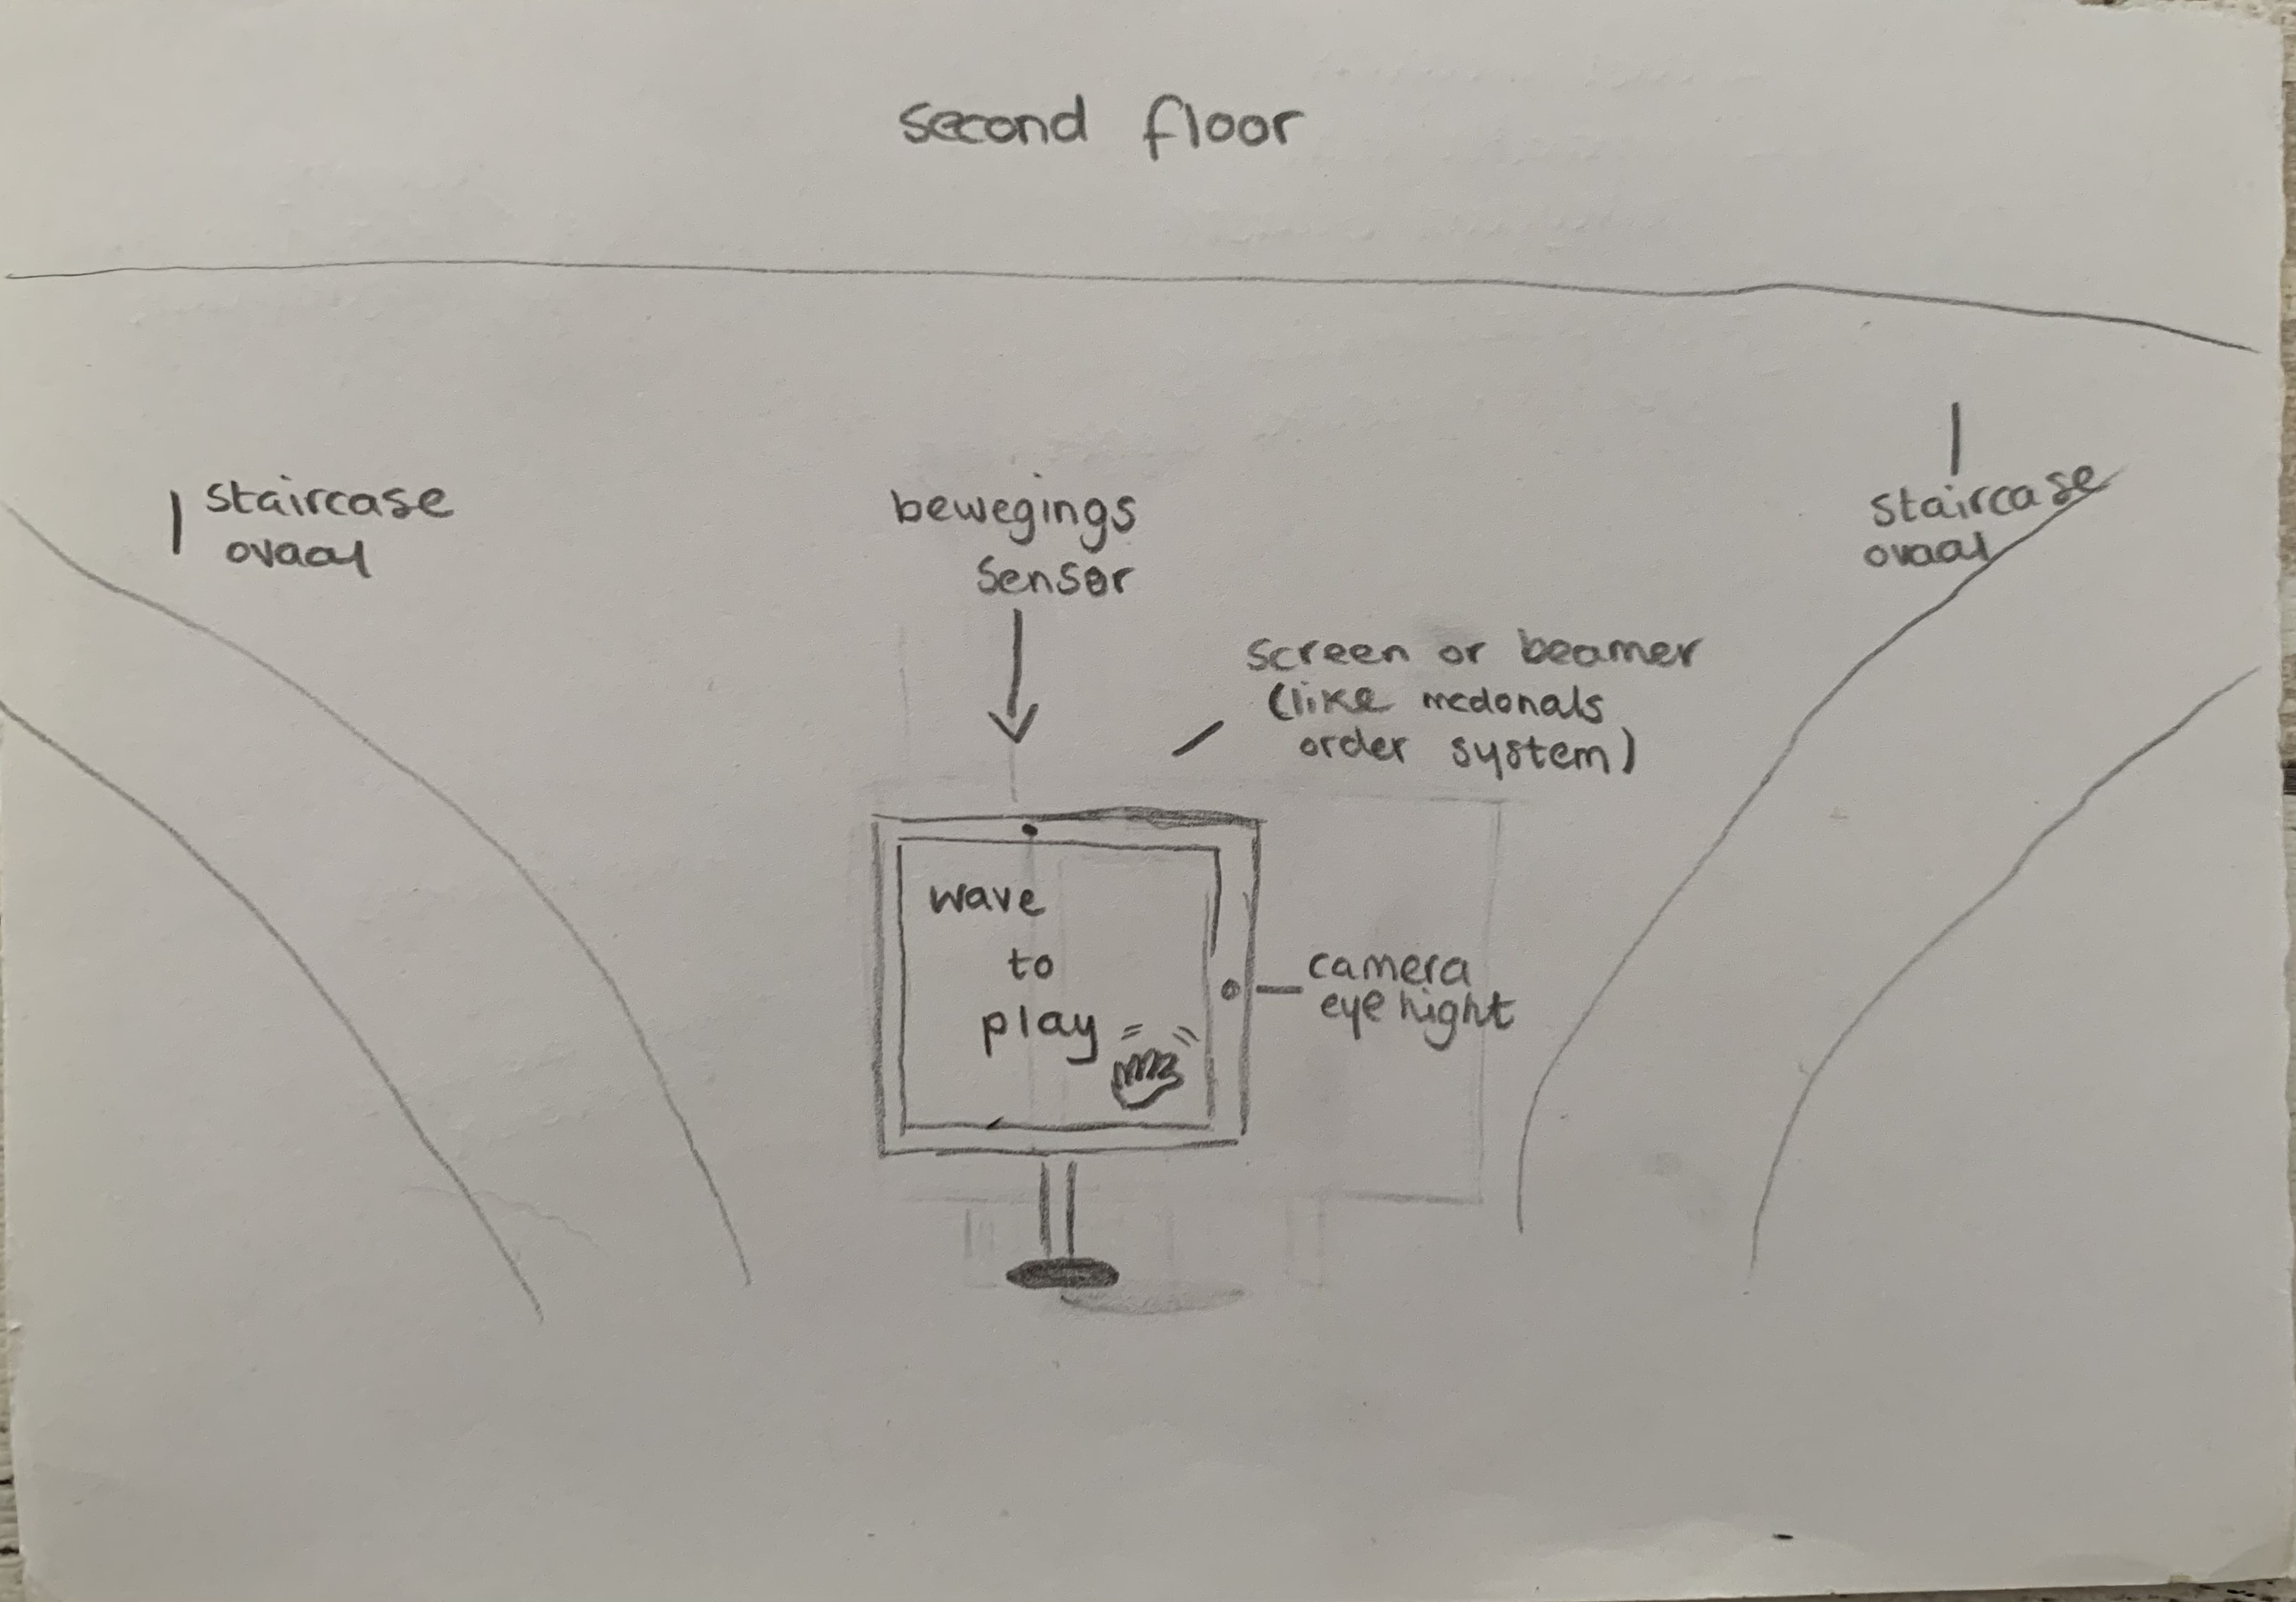 second floor
staircase
ovaal
bewegings
sensor
staircase
ovaal
screen or beamer
(like mcdonals
order system)
wave
to
play
camera
eye hight